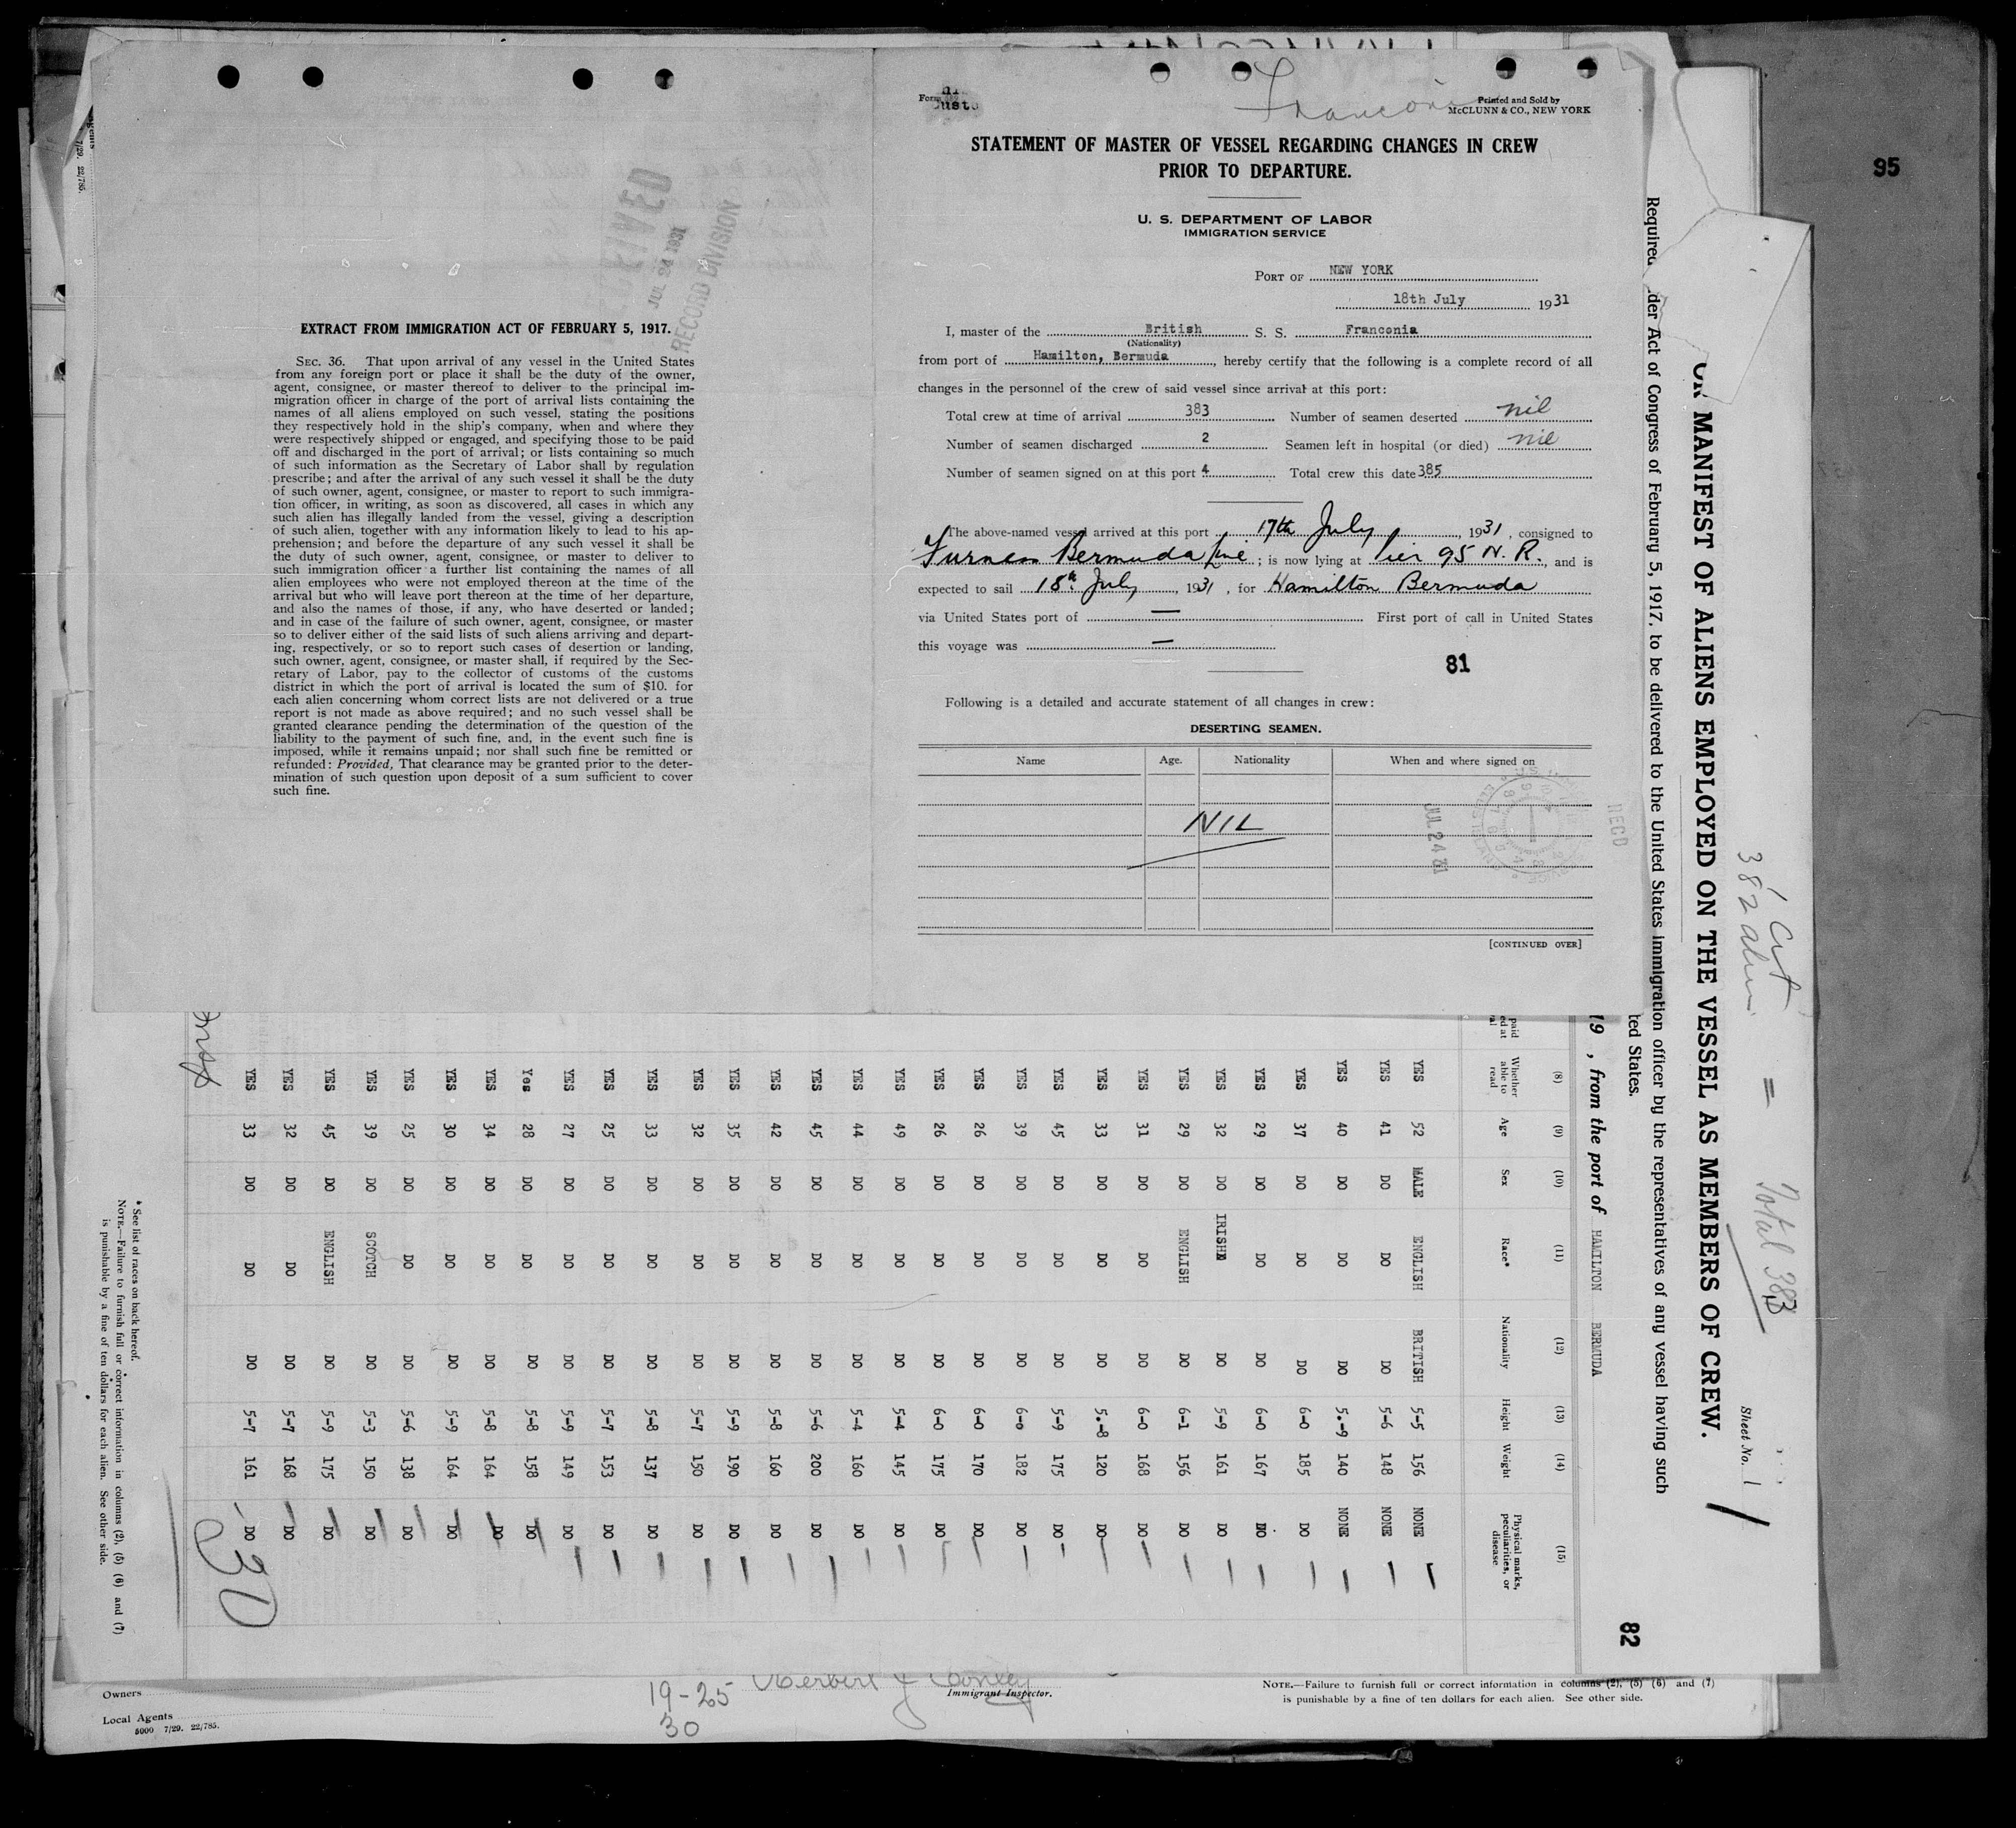 95
Franconia
Form
Printed and Sold by
McCLUNN & CO., NEW YORK
STATEMENT OF MASTER OF VESSEL REGARDING CHANGES IN CREW
PRIOR TO DEPARTURE.
U. S. DEPARTMENT OF LABOR
IMMIGRATION SERVICE
PORT OF NEW YORK
18th July 1931
I, master of the British S. S. Franconia
(Nationality)
from port of Hamilton, Bermuda, hereby certify that the following is a complete record of all
changes in the personnel of the crew of said vessel since arrival at this port:
Total crew at time of arrival 383 Number of seamen deserted nil
Number of seamen discharged 2 Seamen left in hospital (or died) nil
Number of seamen signed on at this port 4 Total crew this date 385
The above-named vessel arrived at this port 17th July, 1931, consigned to
Furness Bermuda Line; is now lying at Pier 95 N. R., and is
expected to sail 18th July, 1931, for Hamilton Bermuda
via United States port of — First port of call in United States
this voyage was —
81
Following is a detailed and accurate statement of all changes in crew:
DESERTING SEAMEN.
Name Age. Nationality When and where signed on
NIL
JUL 24 31
RECD
[CONTINUED OVER]
RECEIVED
JUL 24 1931
RECORD DIVISION
EXTRACT FROM IMMIGRATION ACT OF FEBRUARY 5, 1917.
SEC. 36. That upon arrival of any vessel in the United States
from any foreign port or place it shall be the duty of the owner,
agent, consignee, or master thereof to deliver to the principal im-
migration officer in charge of the port of arrival lists containing the
names of all aliens employed on such vessel, stating the positions
they respectively hold in the ship's company, when and where they
were respectively shipped or engaged, and specifying those to be paid
off and discharged in the port of arrival; or lists containing so much
of such information as the Secretary of Labor shall by regulation
prescribe; and after the arrival of any such vessel it shall be the duty
of such owner, agent, consignee, or master to report to such immigra-
tion officer, in writing, as soon as discovered, all cases in which any
such alien has illegally landed from the vessel, giving a description
of such alien, together with any information likely to lead to his ap-
prehension; and before the departure of any such vessel it shall be
the duty of such owner, agent, consignee, or master to deliver to
such immigration officer a further list containing the names of all
alien employees who were not employed thereon at the time of the
arrival but who will leave port thereon at the time of her departure,
and also the names of those, if any, who have deserted or landed;
and in case of the failure of such owner, agent, consignee, or master
so to deliver either of the said lists of such aliens arriving and depart-
ing, respectively, or so to report such cases of desertion or landing,
such owner, agent, consignee, or master shall, if required by the Sec-
retary of Labor, pay to the collector of customs of the customs
district in which the port of arrival is located the sum of $10. for
each alien concerning whom correct lists are not delivered or a true
report is not made as above required; and no such vessel shall be
granted clearance pending the determination of the question of the
liability to the payment of such fine, and, in the event such fine is
imposed, while it remains unpaid; nor shall such fine be remitted or
refunded: Provided, That clearance may be granted prior to the deter-
mination of such question upon deposit of a sum sufficient to cover
such fine.
Total 383
Sheet No. 1
OR MANIFEST OF ALIENS EMPLOYED ON THE VESSEL AS MEMBERS OF CREW.
Act of Congress of February 5, 1917, to be delivered to the United States immigration officer by the representatives of any vessel having such
ted States.
82
19 , from the port of HAMILTON BERMUDA
(8) (9) (10) (11) (12) (13) (14) (15)
Whether able to read Age Sex Race* Nationality Height Weight Physical marks, peculiarities, or disease
YES 52 MALE ENGLISH BRITISH 5-5 156 NONE
YES 41 DO DO DO 5-6 148 NONE
YES 40 DO DO DO 5.-9 140 NONE
YES 37 DO DO DO 6-0 185 DO
YES 29 DO DO DO 6-0 167 DO
YES 32 DO IRISH DO 5-9 161 DO
YES 29 DO ENGLISH DO 6-1 156 DO
YES 31 DO DO DO 6-0 168 DO
YES 33 DO DO DO 5.-8 120 DO
YES 45 DO DO DO 5-9 175 DO
YES 39 DO DO DO 6-0 182 DO
YES 26 DO DO DO 6-0 170 DO
YES 26 DO DO DO 6-0 175 DO
YES 49 DO DO DO 5-4 145 DO
YES 44 DO DO DO 5-4 160 DO
YES 45 DO DO DO 5-6 200 DO
YES 42 DO DO DO 5-8 160 DO
YES 35 DO DO DO 5-9 190 DO
YES 32 DO DO DO 5-7 150 DO
YES 33 DO DO DO 5-8 137 DO
YES 25 DO DO DO 5-7 153 DO
YES 27 DO DO DO 5-9 149 DO
Yes 28 DO DO DO 5-8 158 DO
YES 34 DO DO DO 5-8 164 DO
YES 30 DO DO DO 5-9 164 DO
YES 25 DO DO DO 5-6 138 DO
YES 39 DO SCOTCH DO 5-3 150 DO
YES 45 DO ENGLISH DO 5-9 175 DO
YES 32 DO DO DO 5-7 168 DO
YES 33 DO DO DO 5-7 161 DO
30
* See list of races on back hereof.
NOTE.—Failure to furnish full or correct information in columns (2), (5) (6) and (7)
is punishable by a fine of ten dollars for each alien. See other side.
Owners
Local Agents
5000 7/29. 22/785.
19-25
30
Immigrant Inspector.
NOTE.—Failure to furnish full or correct information in columns (2), (5) (6) and (7)
is punishable by a fine of ten dollars for each alien. See other side.